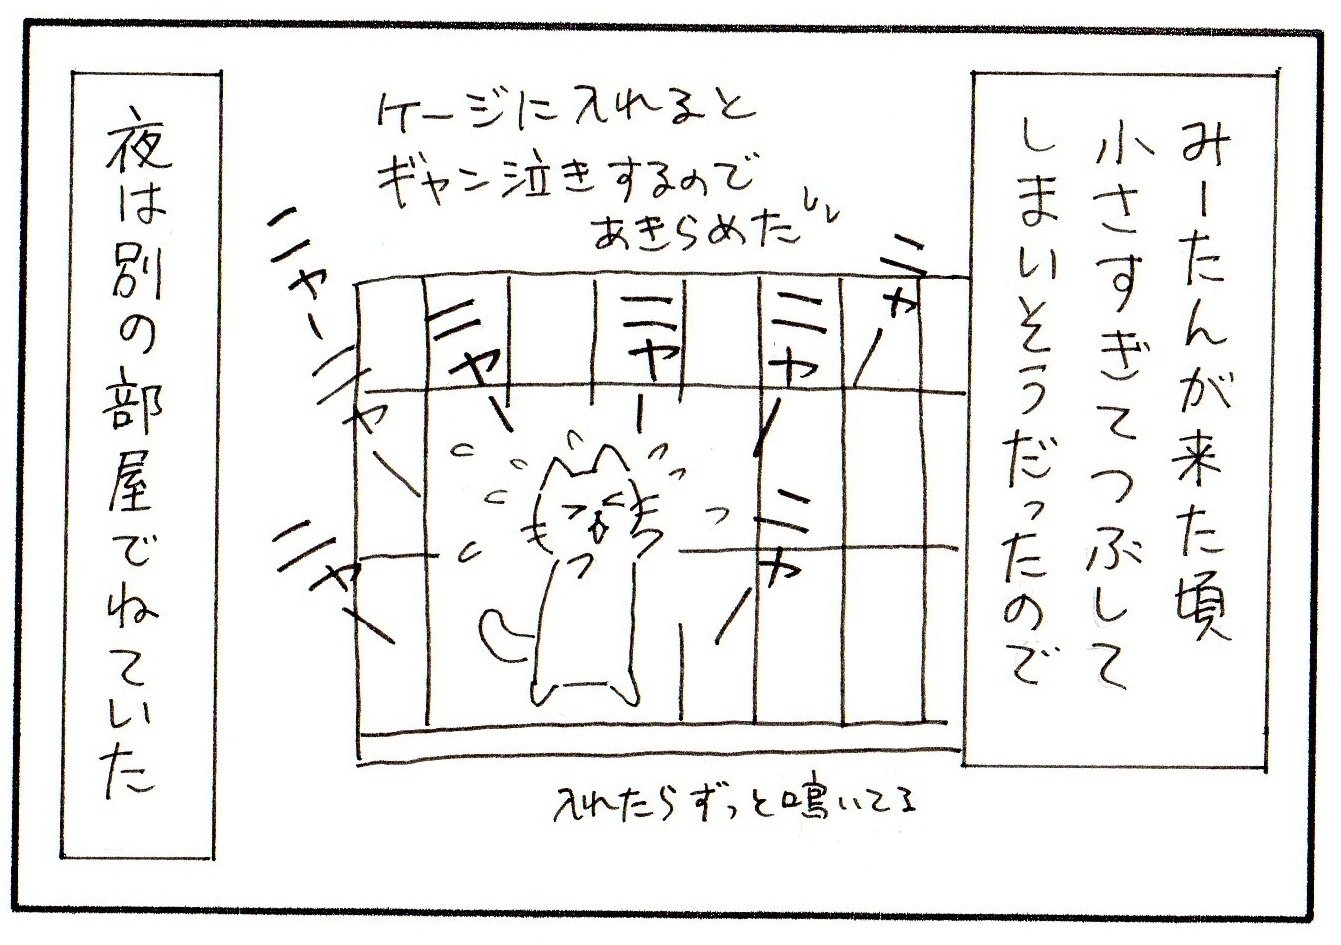 みーたんが来た頃
小さすぎてつぶして
しまいそうだったので
ケージに入れると
ギャン泣きするので
あきらめた
ニャー
ニャー
ニャー
ニャー
ニャー
ニャー
ニャー
ニャー
入れたらずっと鳴いてる
夜は別の部屋でねていた